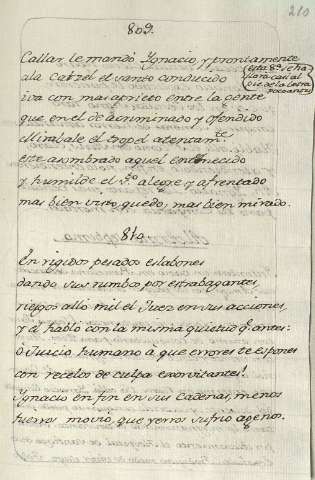 809.
210
Callar le mandó Ygnacio, y prontamente
a la Carzel el santo conducido
iva con mas aprieto entre la gente
que en el de acriminado y ofendido
Mirabale el tropel atentam.te
este asombrado aquel enternecido
y humilde el S.to alegre y afrentado
mas bien visto, quedó, mas bien mirado.
esta 8ª se ha
llara casi al
pie de la letra
810.
En rigidos pesados eslabones
dando sus rumbos por extrabagantes,
riesgos alló mil el Juez en sus acciones,
y el habló con la misma quietud q.e antes:
ó Juicio humano á que errores te espones
con recelos de culpa exorvitantes!
Ygnacio en fin en sus cadenas, menos
hierros movió, que yerros sufrió agenos.